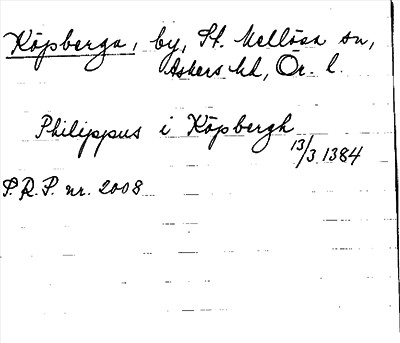 Köpberga, by, St. Mellösa sn,
Askers hd, Ör. l.
Philippus i Köpbergh
13/3 1384
S.R.P. nr. 2008